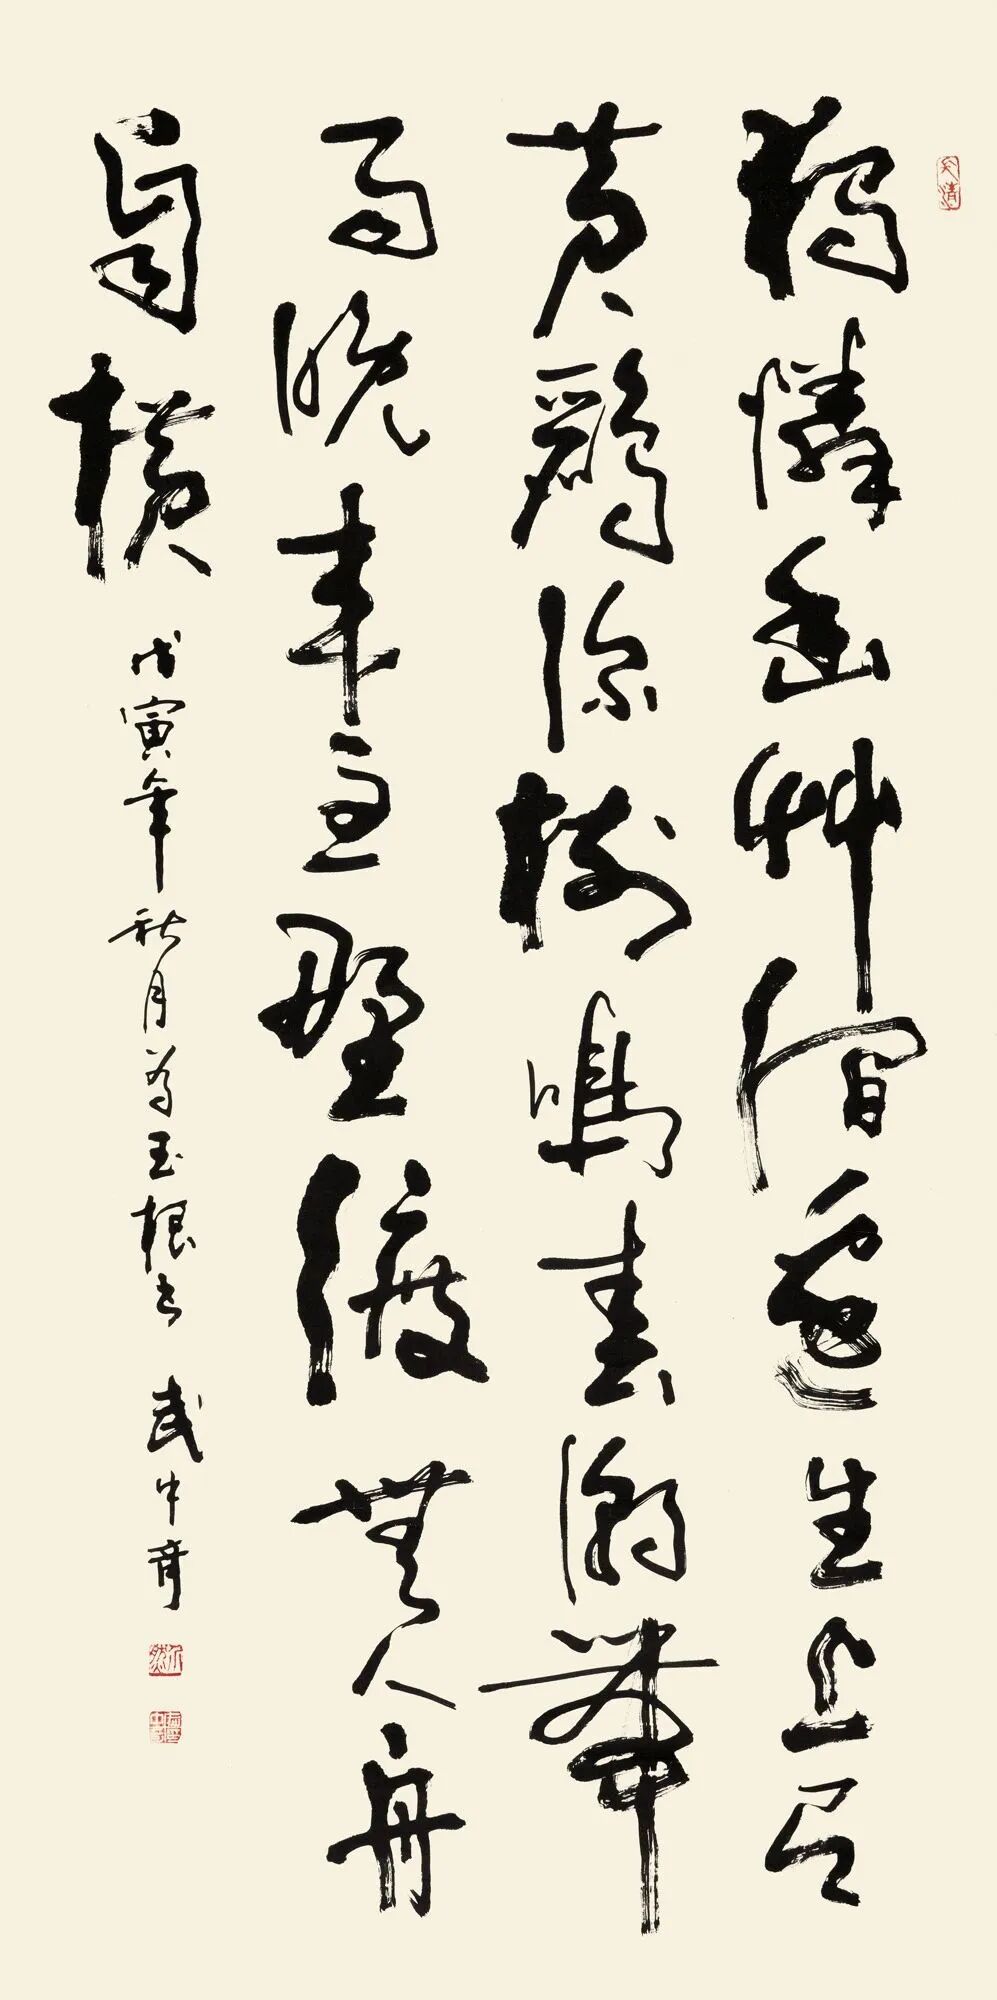 獨憐幽艸澗邊生上有
黄鸝深樹鳴春潮帶
雨晚来急野渡無人舟
自横
戊寅年秋月为玉根书 武中奇